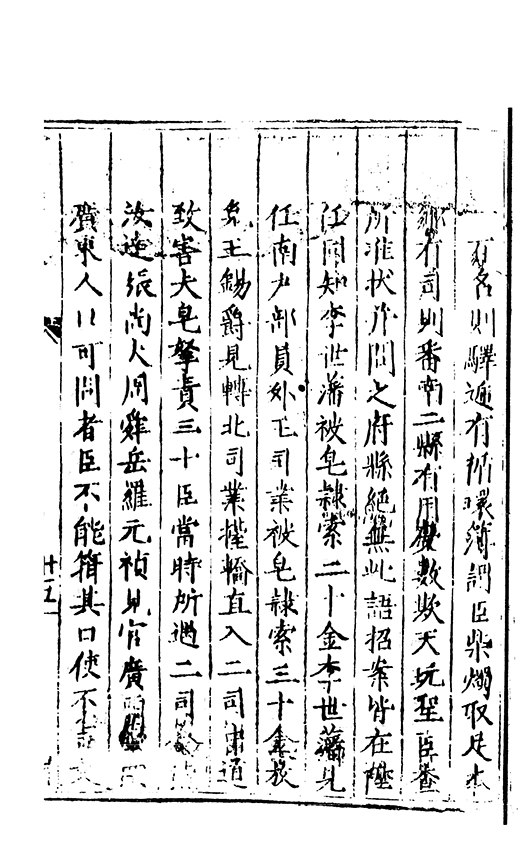 百名則驛遞有循環簿謂臣柴燭取足
有司則番南二縣有用數欺天玩聖臣查
所准狀詞問之府縣絕無此語招案皆在
任同知李世藩被皂隸索二十金李世藩見
任南戶部員外王司業被皂隸索三十金
兄王錫爵見轉北司業擡轎直入二司中道
致害夫皂拏責三十臣當時所過二司
汝達張尚大周鷄岳羅元禎見官廣
廣東人人可問者臣不能箝其口使不言
十五